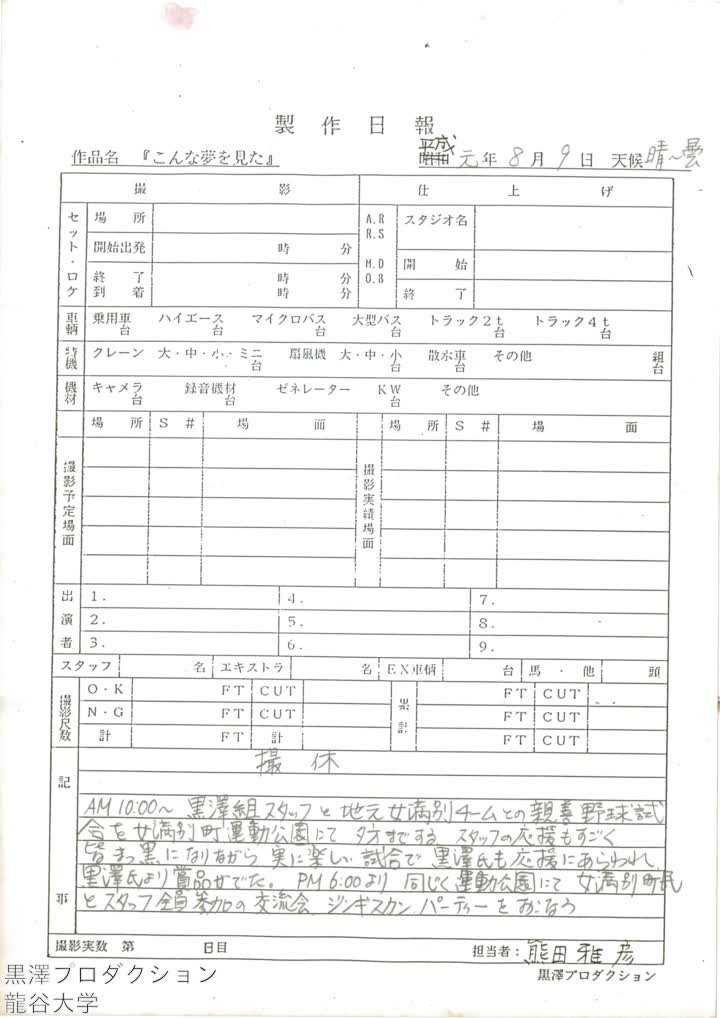 製作日報
作品名 『こんな夢を見た』 平成 元年 8月 9日 天候 晴〜曇
撮影 仕上げ
セット・ロケ 場所 A.R R.S スタジオ名
開始出発 時 分 M.D O.B 開始
終了 時 分 終了
到着 時 分
車輌 乗用車 台 ハイエース 台 マイクロバス 台 大型バス 台 トラック2t 台 トラック4t 台
特機 クレーン 大・中・小・ミニ 台 扇風機 大・中・小 台 散水車 台 その他 組 台
機材 キャメラ 台 録音機材 台 ゼネレーター KW 台 その他
場所 S# 場面 場所 S# 場面
撮影予定場面 撮影実績場面
出演者 1. 4. 7.
2. 5. 8.
3. 6. 9.
スタッフ 名 エキストラ 名 EX車輌 台 馬・他 頭
撮影尺数 O・K FT CUT 累計 FT CUT
N・G FT CUT FT CUT
計 FT 計 FT CUT
記事 撮休
AM 10:00〜 黒澤組スタッフと地元女満別チームとの親善野球試
合を女満別町運動公園にて 夕方までする スタッフの応援もすごく
皆まっ黒になりながら 実に楽しい試合で 黒澤氏も応援にあらわれ
黒澤氏より賞品がでた。 PM 6:00より 同じく運動公園にて 女満別町民
とスタッフ全員参加の交流会 ジンギスカンパーティーをおこなう
撮影実数 第 日目 担当者: 熊田雅彦
黒澤プロダクション
黒澤プロダクション
龍谷大学